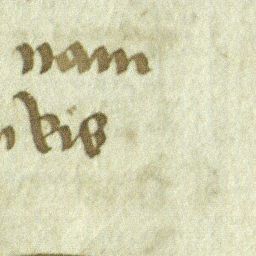 nam
kis